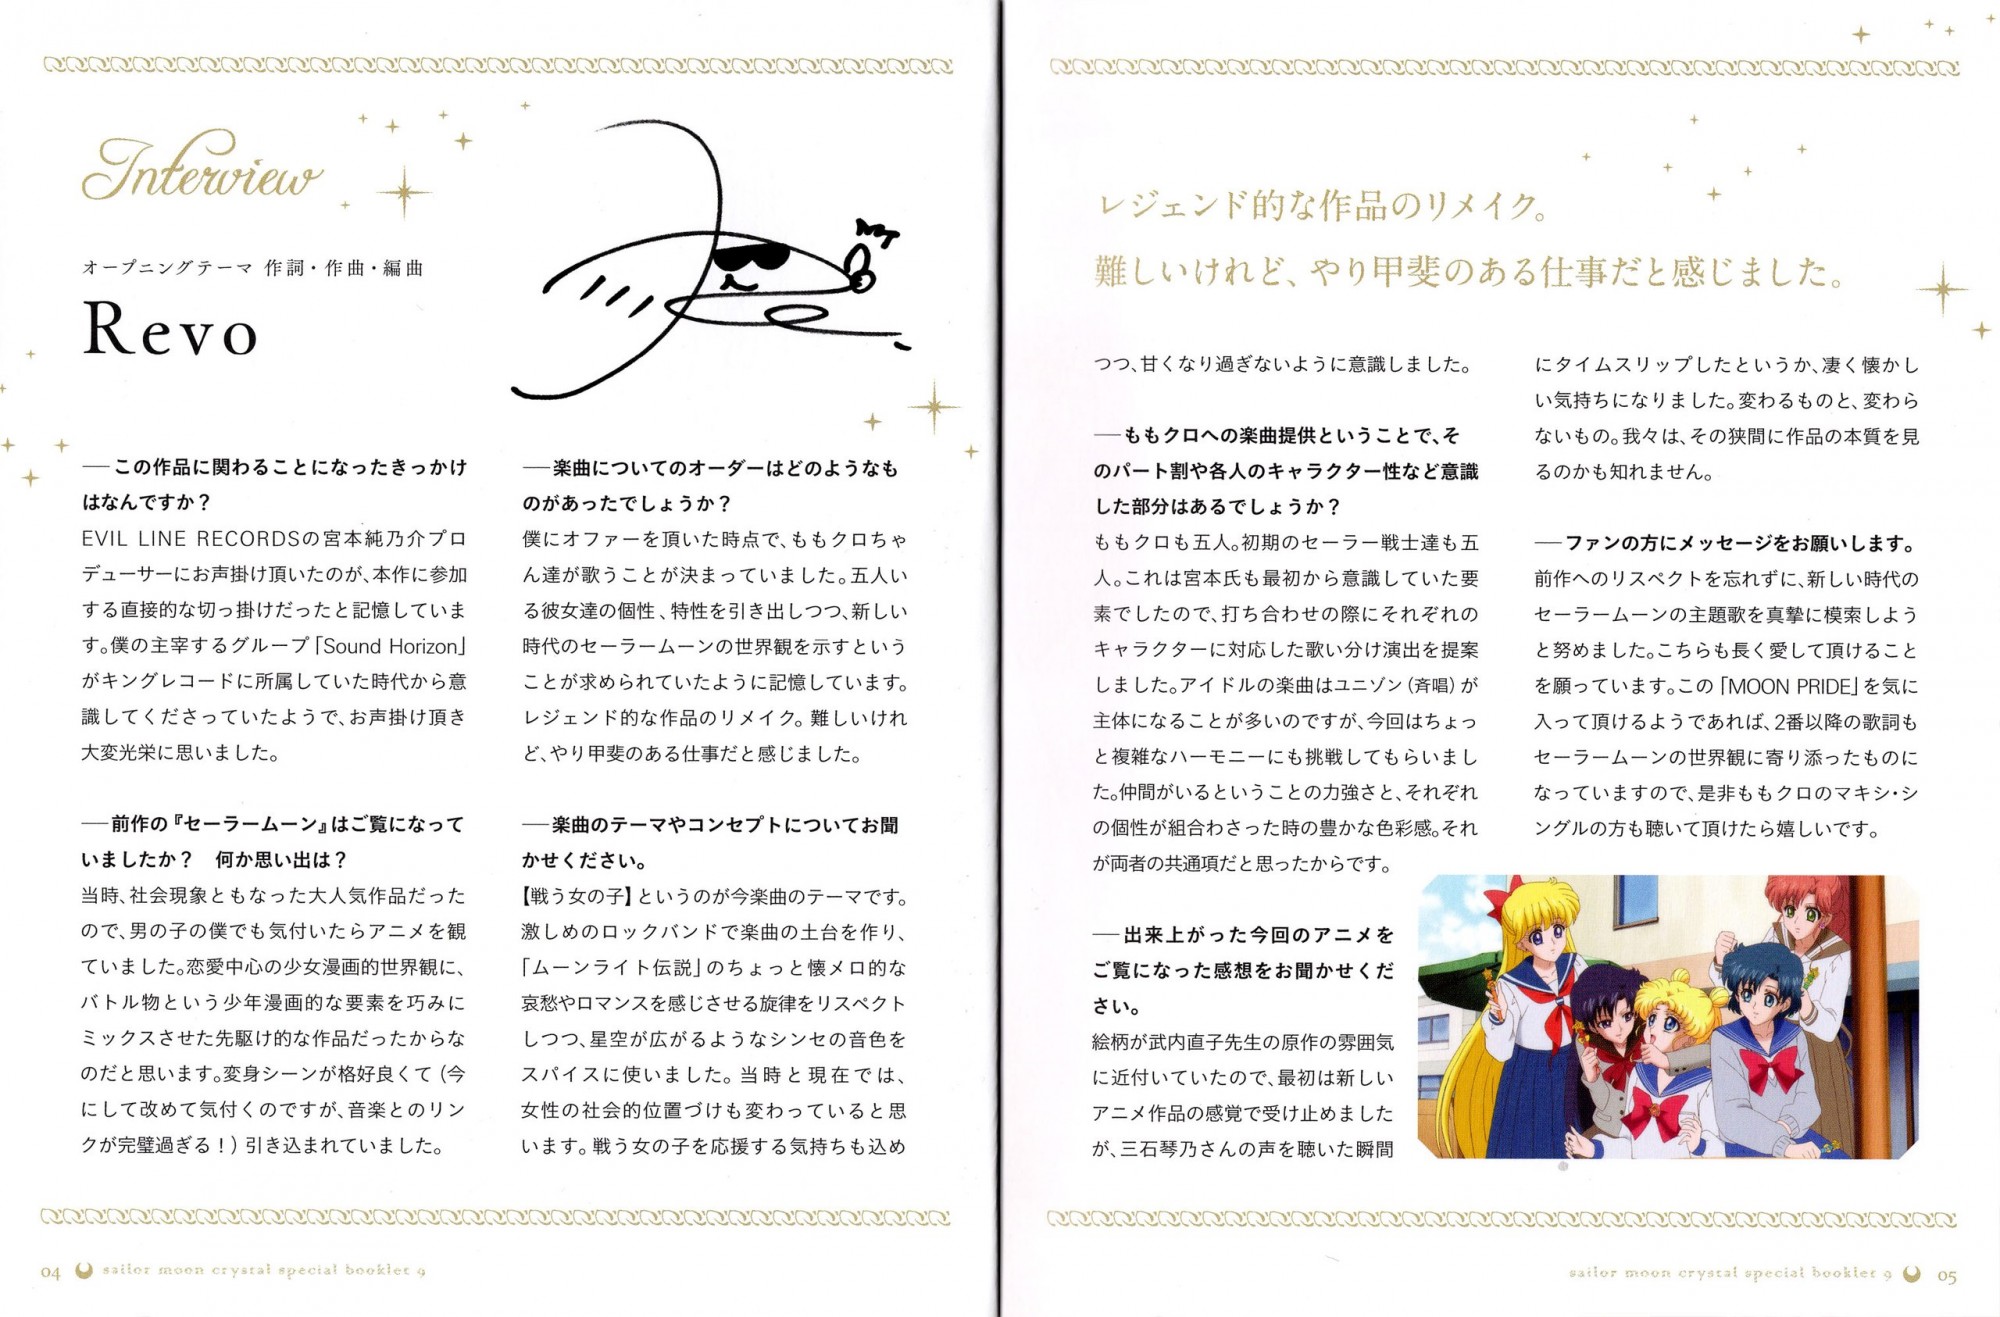 Interview
オープニングテーマ 作詞・作曲・編曲
Revo
──この作品に関わることになったきっかけ
はなんですか？
EVIL LINE RECORDSの宮本純乃介プロ
デューサーにお声掛け頂いたのが、本作に参加
する直接的な切っ掛けだったと記憶していま
す。僕の主宰するグループ「Sound Horizon」
がキングレコードに所属していた時代から意
識してくださっていたようで、お声掛け頂き
大変光栄に思いました。
──前作の『セーラームーン』はご覧になって
いましたか？　何か思い出は？
当時、社会現象ともなった大人気作品だった
ので、男の子の僕でも気付いたらアニメを観
ていました。恋愛中心の少女漫画的世界観に、
バトル物という少年漫画的な要素を巧みに
ミックスさせた先駆け的な作品だったからな
のだと思います。変身シーンが格好良くて（今
にして改めて気付くのですが、音楽とのリン
クが完璧過ぎる！）引き込まれていました。
──楽曲についてのオーダーはどのようなも
のがあったでしょうか？
僕にオファーを頂いた時点で、ももクロちゃ
ん達が歌うことが決まっていました。五人い
る彼女達の個性、特性を引き出しつつ、新しい
時代のセーラームーンの世界観を示すという
ことが求められていたように記憶しています。
レジェンド的な作品のリメイク。難しいけれ
ど、やり甲斐のある仕事だと感じました。
──楽曲のテーマやコンセプトについてお聞
かせください。
【戦う女の子】というのが今楽曲のテーマです。
激しめのロックバンドで楽曲の土台を作り、
「ムーンライト伝説」のちょっと懐メロ的な
哀愁やロマンスを感じさせる旋律をリスペクト
しつつ、星空が広がるようなシンセの音色を
スパイスに使いました。当時と現在では、
女性の社会的位置づけも変わっていると思
います。戦う女の子を応援する気持ちも込め
04 sailor moon crystal special booklet 9
レジェンド的な作品のリメイク。
難しいけれど、やり甲斐のある仕事だと感じました。
つつ、甘くなり過ぎないように意識しました。
──ももクロへの楽曲提供ということで、そ
のパート割や各人のキャラクター性など意識
した部分はあるでしょうか？
ももクロも五人。初期のセーラー戦士達も五
人。これは宮本氏も最初から意識していた要
素でしたので、打ち合わせの際にそれぞれの
キャラクターに対応した歌い分け演出を提案
しました。アイドルの楽曲はユニゾン（斉唱）が
主体になることが多いのですが、今回はちょっ
と複雑なハーモニーにも挑戦してもらいまし
た。仲間がいるということの力強さと、それぞれ
の個性が組合わさった時の豊かな色彩感。それ
が両者の共通項だと思ったからです。
──出来上がった今回のアニメを
ご覧になった感想をお聞かせくだ
さい。
絵柄が武内直子先生の原作の雰囲気
に近付いていたので、最初は新しい
アニメ作品の感覚で受け止めました
が、三石琴乃さんの声を聴いた瞬間
にタイムスリップしたというか、凄く懐かし
い気持ちになりました。変わるものと、変わら
ないもの。我々は、その狭間に作品の本質を見
るのかも知れません。
──ファンの方にメッセージをお願いします。
前作へのリスペクトを忘れずに、新しい時代の
セーラームーンの主題歌を真摯に模索しよう
と努めました。こちらも長く愛して頂けること
を願っています。この「MOON PRIDE」を気に
入って頂けるようであれば、2番以降の歌詞も
セーラームーンの世界観に寄り添ったものに
なっていますので、是非ももクロのマキシ・シ
ングルの方も聴いて頂けたら嬉しいです。
sailor moon crystal special booklet 9 05